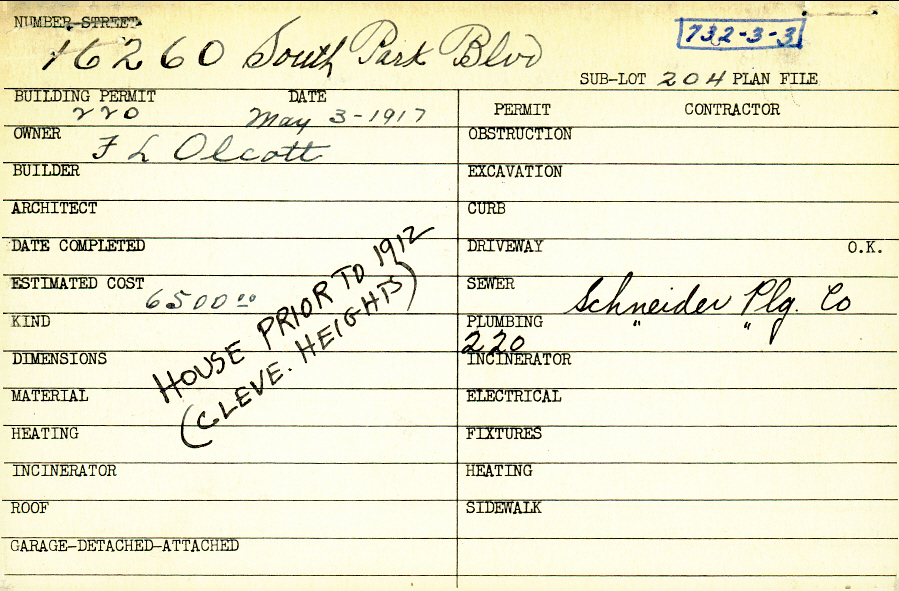 NUMBER-STREET
16260 South Park Blvd
732-3-3
SUB-LOT 204 PLAN FILE
BUILDING PERMIT DATE
220 May 3-1917
PERMIT CONTRACTOR
OWNER F L Olcott
OBSTRUCTION
BUILDER
EXCAVATION
ARCHITECT
CURB
DATE COMPLETED
DRIVEWAY O.K.
ESTIMATED COST 6500 00
SEWER Schneider Plg. Co
KIND
PLUMBING " "
220
DIMENSIONS
INCINERATOR
MATERIAL
ELECTRICAL
HEATING
FIXTURES
INCINERATOR
HEATING
ROOF
SIDEWALK
GARAGE-DETACHED-ATTACHED
HOUSE PRIOR TO 1912
(CLEVE. HEIGHTS)